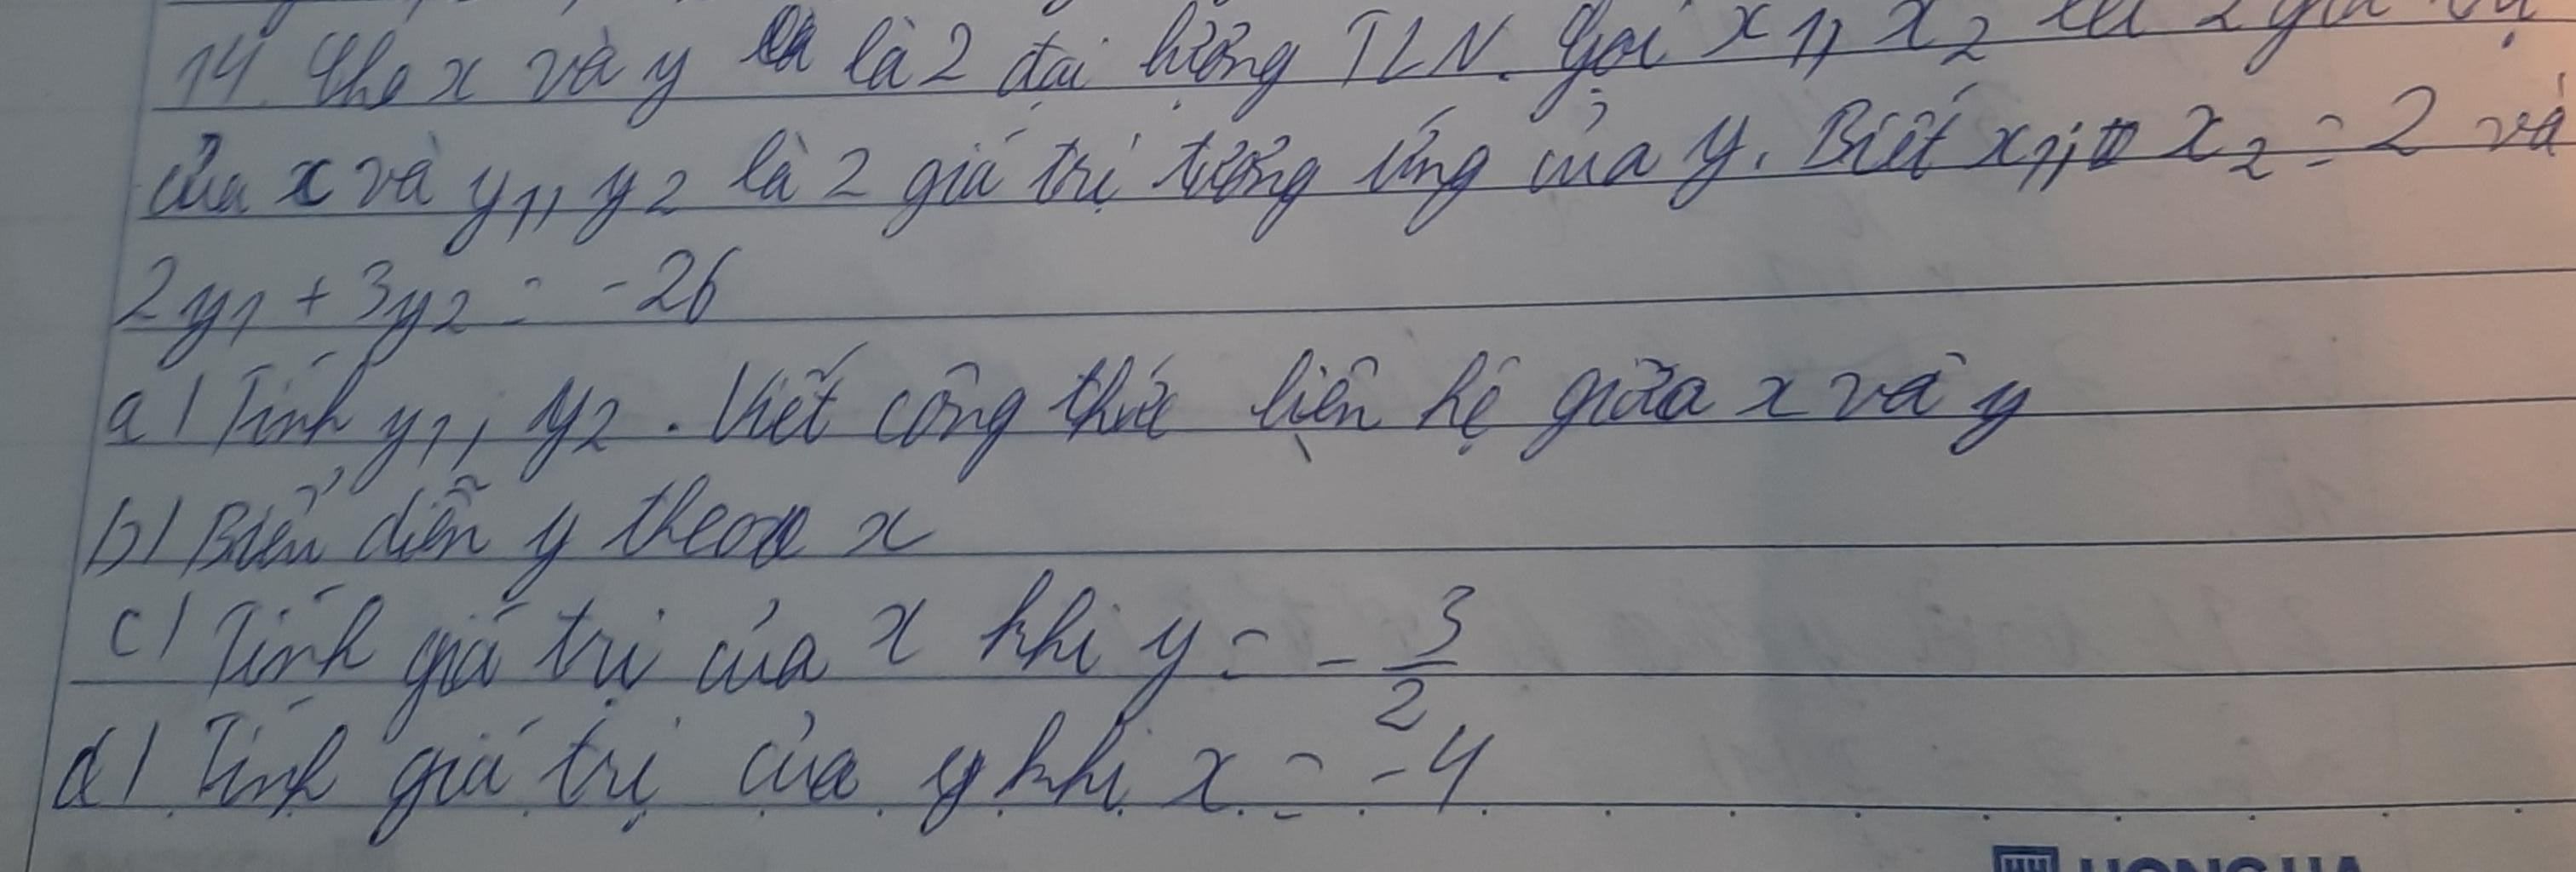 14. Cho x và y là 2 đại lượng TLN. Gọi x1, x2 là 2 giá trị
của x và y1, y2 là 2 giá trị tương ứng của y. Biết x1; x2 = 2 và
2y1 + 3y2 = -26
a) Tính y1, y2. Viết công thức liên hệ giữa x và y
b) Biểu diễn y theo x
c) Tính giá trị của x khi y = - 3/2
d) Tính giá trị của y khi x = -4
HONG HA